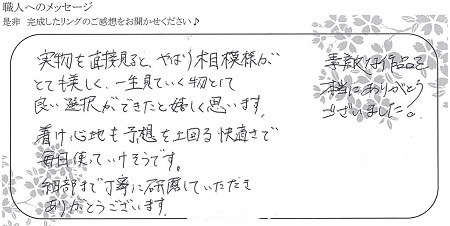 職人へのメッセージ
是非 完成したリングのご感想をお聞かせください♪
実物を直接見ると、やはり相模様が
とても美しく、一生見ていく物として
良い選択ができたと嬉しく思います。
着け心地も予想を上回る快適さで
毎日使っていけそうです。
細部まで丁寧に研磨していただき
ありがとうございます。
素敵な作品を
本当にありがとう
ございました。